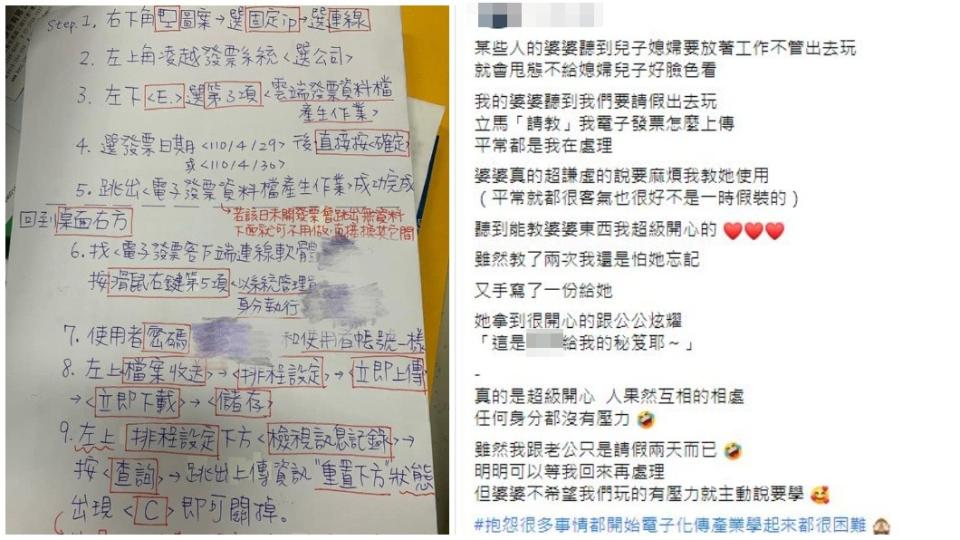 Step.1. 右下角圖案→選固定ip→選連線
2. 左上角凌越發票系統<選公司>
3. 左下<E.>選第3項<雲端發票資料檔
產生作業>
4. 選發票日期<110/4/29>後直接按<確定>
或<110/4/30>
5. 跳出<電子發票資料檔產生作業>成功完成
回到桌面右方
若該日未開發票會跳出無資料
下面就可不用做,直接換其它間
6. 找<電子發票客戶端連線軟體
按滑鼠右鍵第5項<以系統管理員
身分執行
7. 使用者密碼 和使用者帳號一樣
8. 左上檔案收送→<排程設定>→立即上傳
→<立即下載>→<儲存>
9. 左上 排程設定下方<檢視訊息記錄>→
按<查詢>→跳出上傳資訊"重置下方"狀態
出現<C>即可關掉。
某些人的婆婆聽到兒子媳婦要放著工作不管出去玩
就會甩態不給媳婦兒子好臉色看
我的婆婆聽到我們要請假出去玩
立馬「請教」我電子發票怎麼上傳
平常都是我在處理
婆婆真的超謙虛的說要麻煩我教她使用
（平常就都很客氣也很好不是一時假裝的）
聽到能教婆婆東西我超級開心的 ❤️❤️❤️
雖然教了兩次我還是怕她忘記
又手寫了一份給她
她拿到很開心的跟公公炫耀
「這是 給我的秘笈耶～」
-
真的是超級開心 人果然互相的相處
任何身分都沒有壓力 🤣
雖然我跟老公只是請假兩天而已 🤣
明明可以等我回來再處理
但婆婆不希望我們玩的有壓力就主動說要學 🥰
#抱怨很多事情都開始電子化傳產業學起來都很困難 🙈